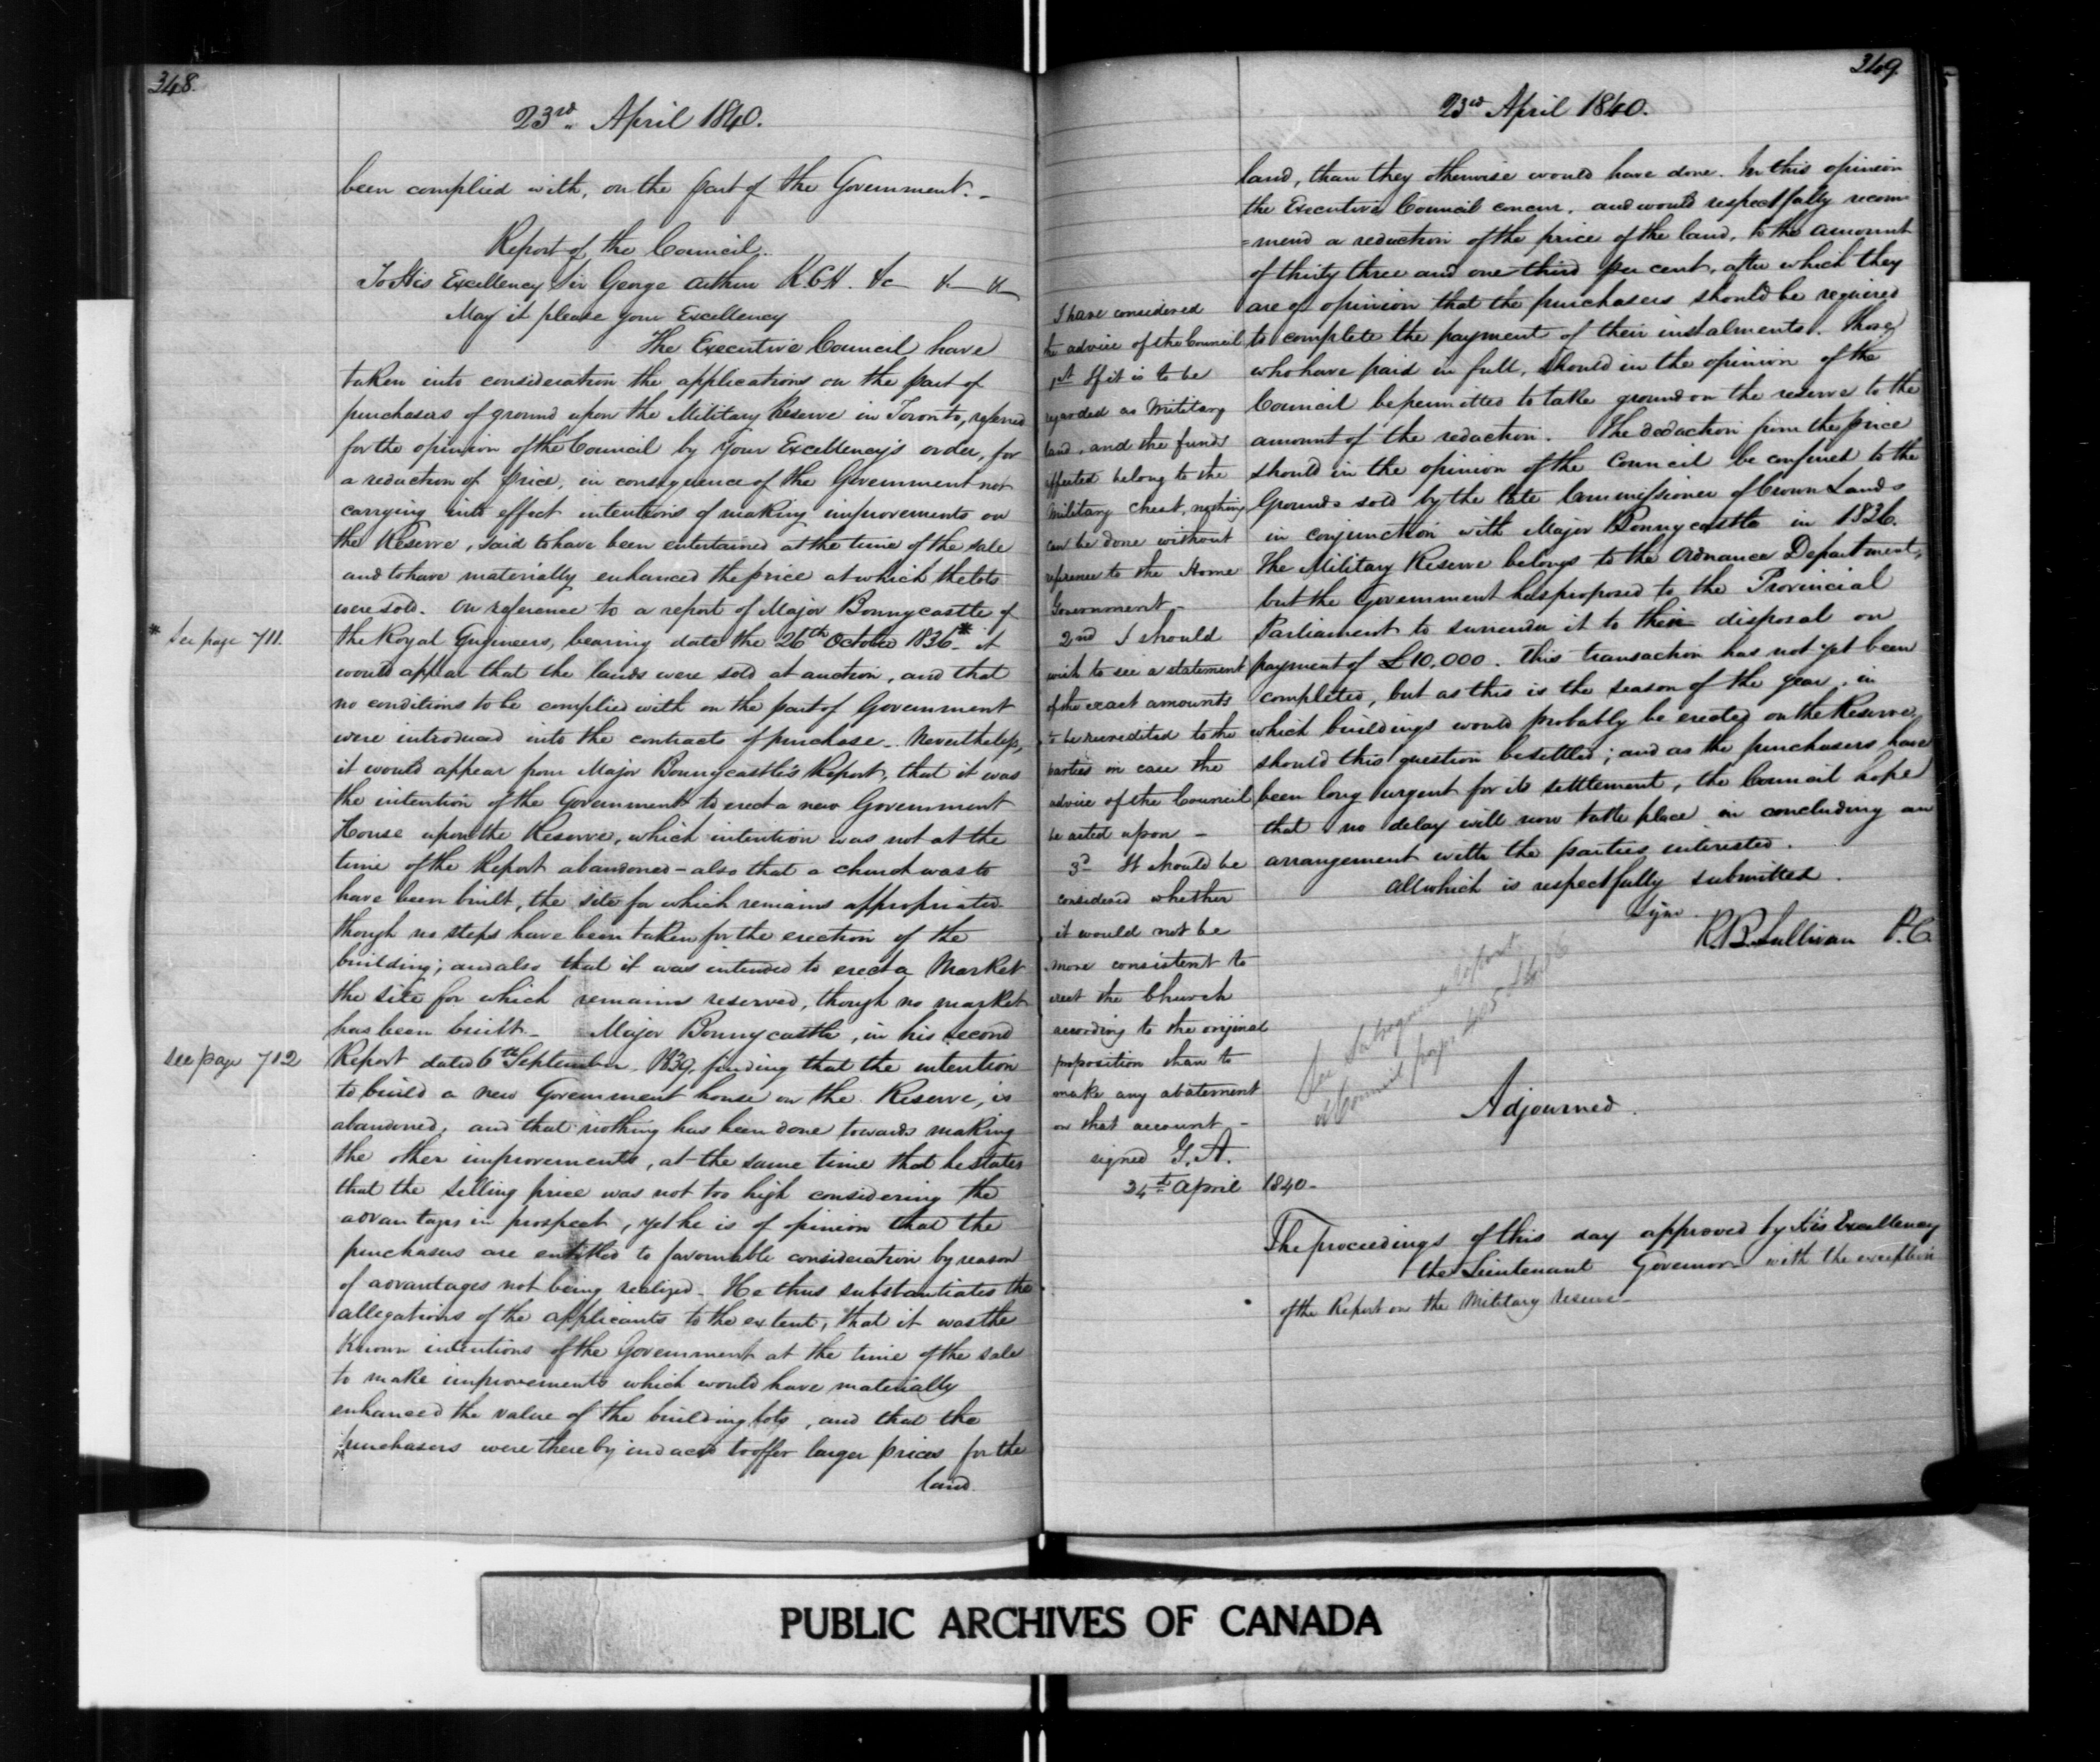 348.
23rd. April 1840.
been complied with, on the part of the Government. -
Report of the Council.
To His Excellency Sir George Arthur K.C.H. &c &c &c
May it please your Excellency
The Executive Council have
taken into consideration the applications on the part of
purchasers of ground upon the Military Reserve in Toronto, referred
for the opinion of the Council by Your Excellency's order, for
a reduction of price, in consequence of the Government not
carrying into effect intentions of making improvements on
the Reserve, said to have been entertained at the time of the sale
and to have materially enhanced the price at which the lots
were sold. On reference to a report of Major Bonnycastle of
* See page 711.
the Royal Engineers, bearing date the 26th October 1836* it
would appear that the lands were sold at auction, and that
no conditions to be complied with on the part of Government
were introduced into the contracts of purchase - Nevertheless,
it would appear from Major Bonnycastle's Report, that it was
the intention of the Government to erect a new Government
House upon the Reserve, which intention was not at the
time of the Report abandoned - also that a church was to
have been built, the site for which remains appropriated
though no steps have been taken for the erection of the
building; and also that it was intended to erect a Market
the site for which remains reserved, though no market
has been built - Major Bonnycastle, in his second
see page 712
Report dated 6th September 1839, finding that the intention
to build a new Government house on the Reserve, is
abandoned, and that nothing has been done towards making
the other improvements, at the same time that he states
that the selling price was not too high considering the
advantages in prospect, yet he is of opinion that the
purchasers are entitled to favourable consideration by reason
of advantages not being realized - He thus substantiates the
allegations of the applicants to the extent, that it was the
known intentions of the Government at the time of the sale
to make improvements which would have materially
enhanced the value of the building lots, and that the
purchasers were thereby induced to offer larger prices for the
land
349.
23rd April 1840.
land, than they otherwise would have done. In this opinion
the Executive Council concur, and would respectfully recom
=mend a reduction of the price of the land, to the amount
of thirty three and one third per cent, after which they
are of opinion that the purchasers should be required
to complete the payment of their instalments. Those
who have paid in full, should in the opinion of the
Council be permitted to take ground on the reserve to the
amount of the reduction. The deduction from the price
should in the opinion of the Council be confined to the
Grounds sold by the late Commissioner of Crown Lands
in conjunction with Major Bonnycastle in 1836.
The Military Reserve belongs to the Ordnance Department,
but the Government has proposed to the Provincial
Parliament to surrender it to their disposal on
payment of £10,000. This transaction has not yet been
completed, but as this is the season of the year, in
which buildings would probably be erected on the Reserve,
should this question be settled; and as the purchasers have
been long urgent for its settlement, the Council hope
that no delay will now take place in concluding an
arrangement with the parties interested.
All which is respectfully submitted.
Signd.
R.B. Sullivan P.C.
I have considered
the advice of the Council
1st If it is to be
regarded as Military
land, and the funds
affected belong to the
Military Chest, nothing
can be done without
reference to the Home
Government -
2nd I should
wish to see a statement
of the exact amounts
to be recredited to the
parties in case the
advice of the Council
be acted upon -
3d It should be
considered whether
it would not be
more consistent to
erect the Church
according to the original
proposition than to
make any abatement
on that account -
signed G.A.
24th April 1840 -
See Subsequent report
of Council page 405
Adjourned.
The proceedings of this day approved by His Excellency
the Lieutenant Governor with the exception
of the Report on the Military reserve -
PUBLIC ARCHIVES OF CANADA